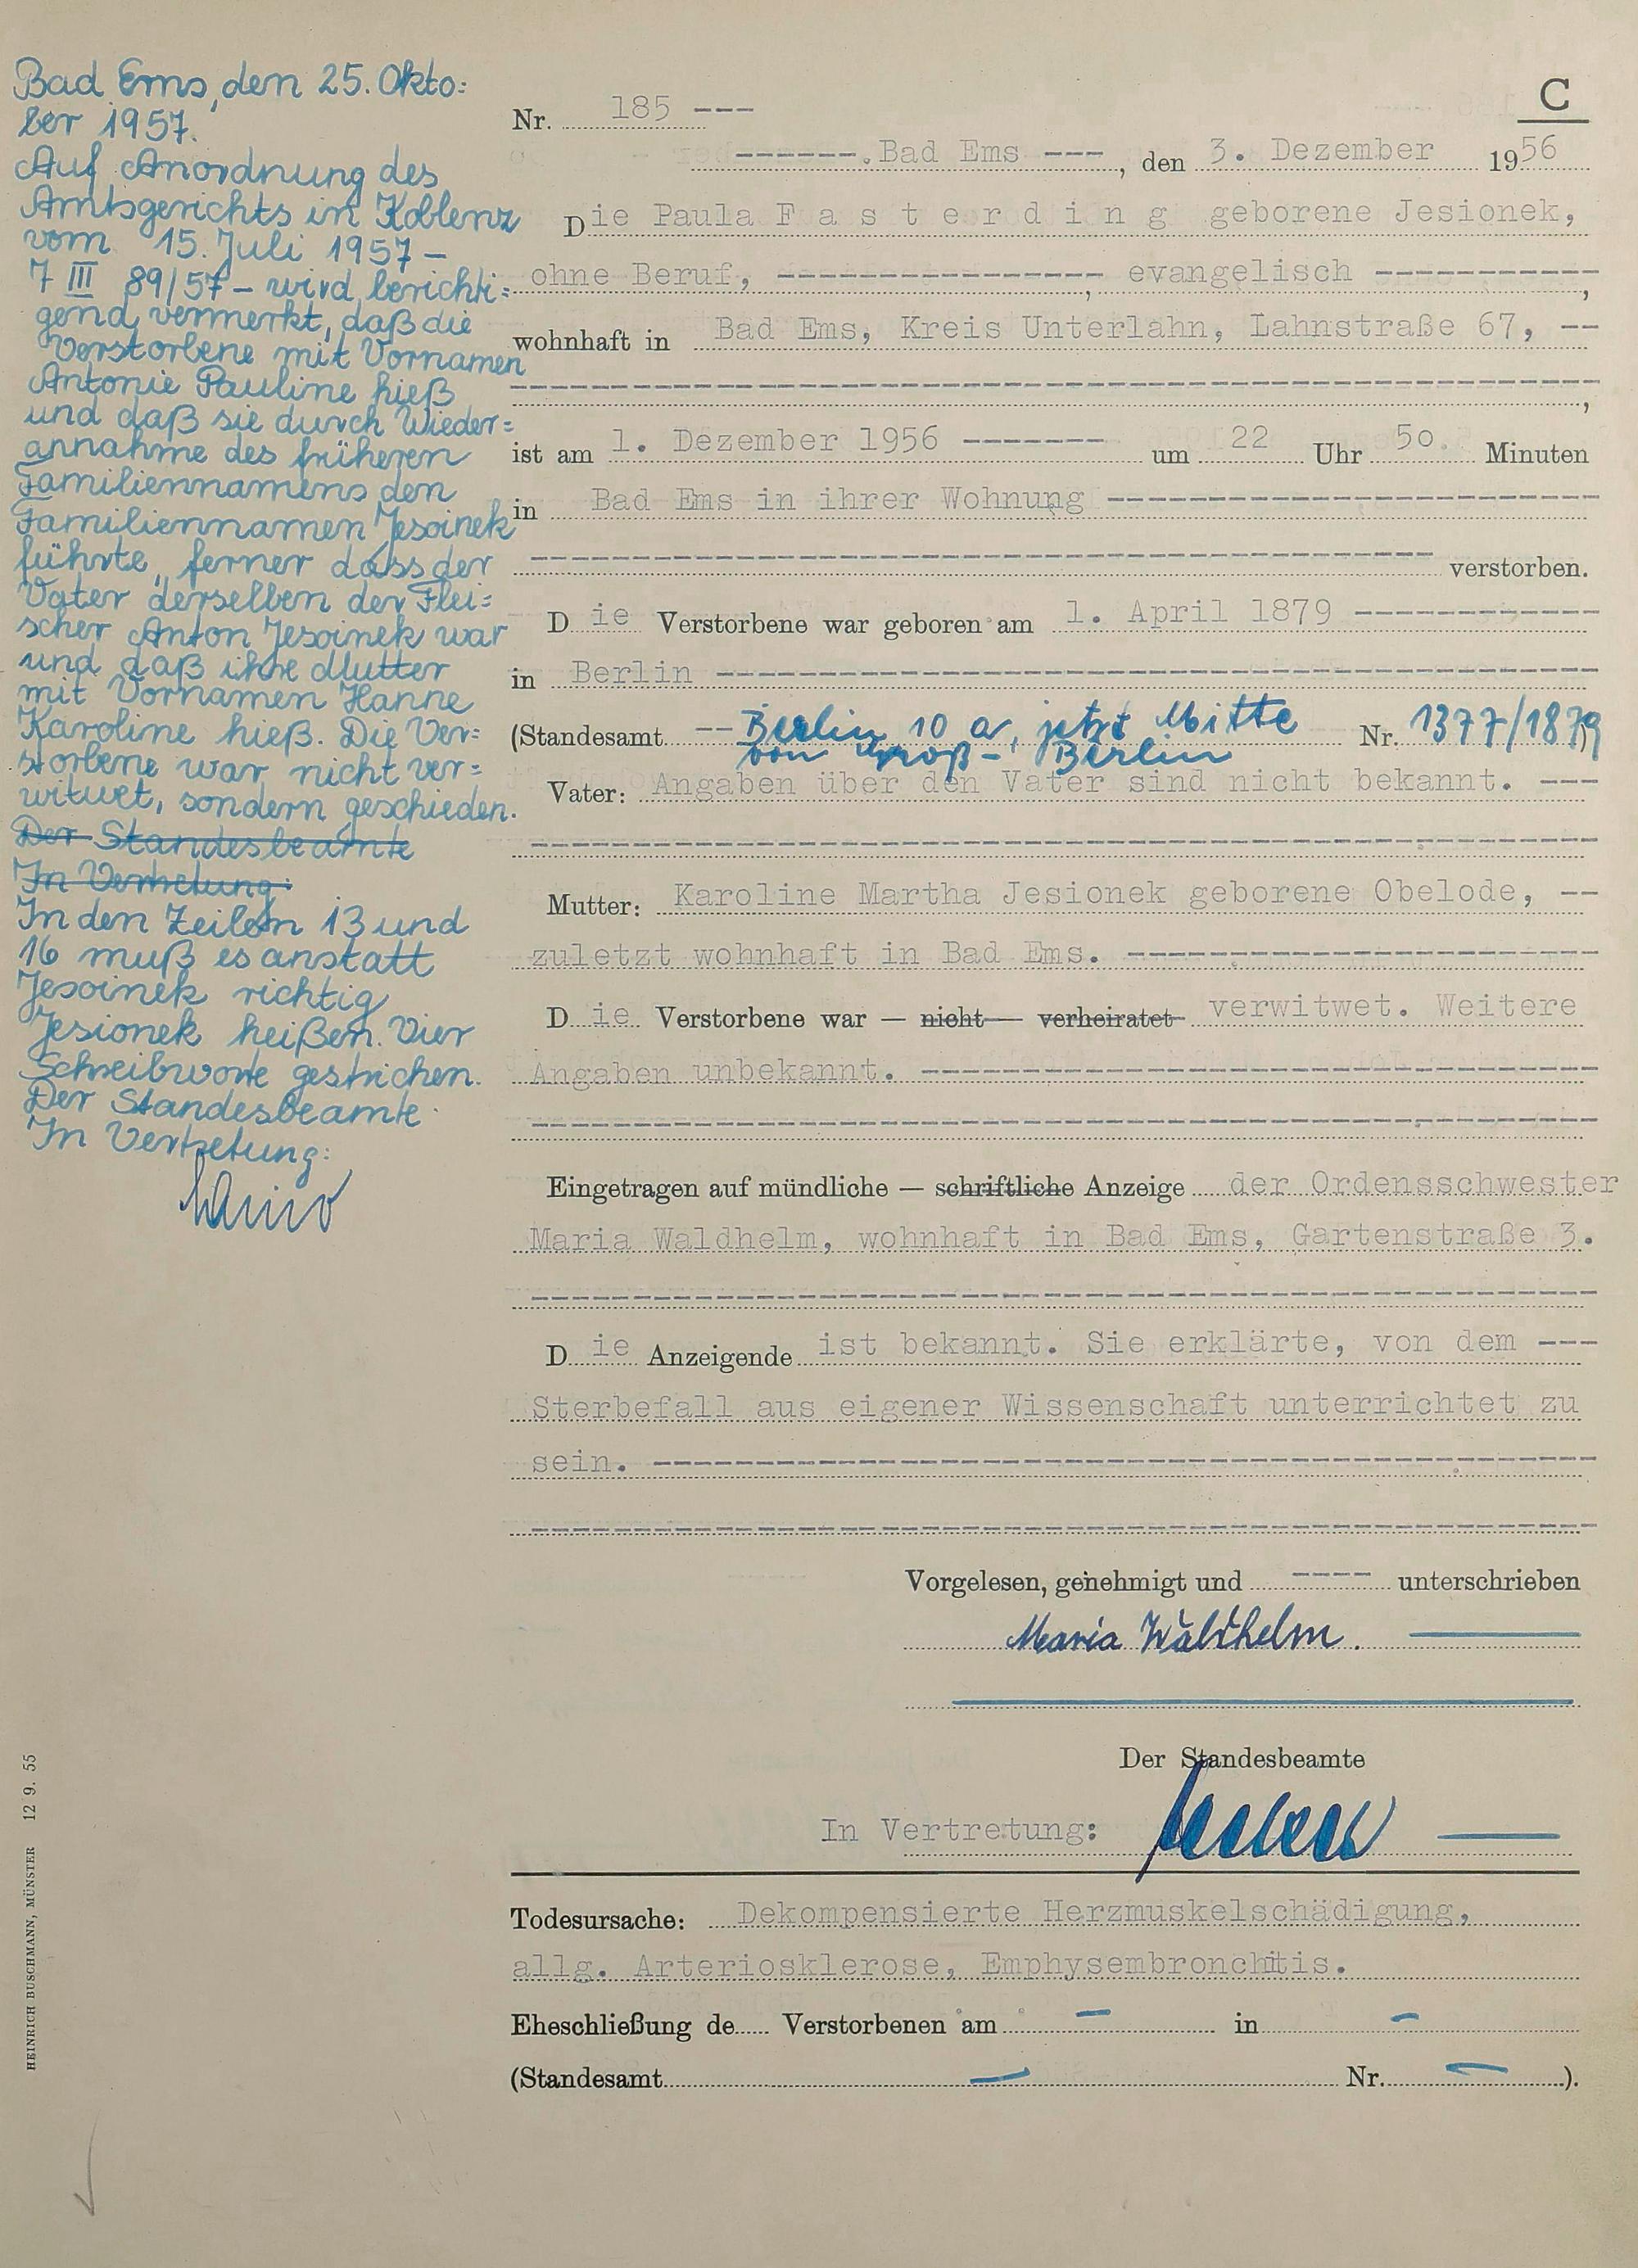 Bad Ems, den 25. Okto:
ber 1957.
Auf Anordnung des
Amtsgerichts in Koblenz
vom 15. Juli 1957 –
7 III 89/57 – wird berichti:
gend vermerkt, daß die
Verstorbene mit Vornamen
Antonie Pauline hieß
und daß sie durch Wieder=
annahme des früheren
Familiennamens den
Familiennamen Jesoinek
führte, ferner dass der
Vater derselben der Flei=
scher Anton Jesoinek war
und daß ihre Mutter
mit Vornamen Hanne
Karoline hieß. Die Ver=
storbene war nicht ver=
witwet, sondern geschieden.
Der Standesbeamte
In Vertretung:
In den Zeilen 13 und
16 muß es anstatt
Jesoinek richtig
Jesionek heißen. Vier
Schreibworte gestrichen.
Der Standesbeamte
In Vertretung:
C
Nr. 185 ---
-------.Bad Ems ---, den 3. Dezember 1956
Die Paula F a s t e r d i n g geborene Jesionek,
ohne Beruf, ----------------, evangelisch -----------,
wohnhaft in Bad Ems, Kreis Unterlahn, Lahnstraße 67, --
,
ist am 1. Dezember 1956 ------- um 22 Uhr 50. Minuten
in Bad Ems in ihrer Wohnung ------------------------
verstorben.
D ie Verstorbene war geboren am 1. April 1879 ------------
in Berlin -------------------------------------------
(Standesamt -- Berlin 10 a, jetzt Mitte Nr. 1377/1879)
von Groß-Berlin
Vater: Angaben über den Vater sind nicht bekannt. ---
Mutter: Karoline Martha Jesionek geborene Obelode, --
zuletzt wohnhaft in Bad Ems. -----------------------
D ie Verstorbene war — nicht — verheiratet verwitwet. Weitere
Angaben unbekannt. ---------------------------------
Eingetragen auf mündliche — schriftliche Anzeige der Ordensschwester
Maria Waldhelm, wohnhaft in Bad Ems, Gartenstraße 3.
D ie Anzeigende ist bekannt. Sie erklärte, von dem ---
Sterbefall aus eigener Wissenschaft unterrichtet zu
sein. ----------------------------------------------
Vorgelesen, genehmigt und ---- unterschrieben
Maria Waldhelm.
Der Standesbeamte
In Vertretung:
Todesursache: Dekompensierte Herzmuskelschädigung,
allg. Arteriosklerose, Emphysembronchitis.
Eheschließung de Verstorbenen am – in –
(Standesamt – Nr. – ).
HEINRICH BUSCHMANN, MÜNSTER 12 9. 55